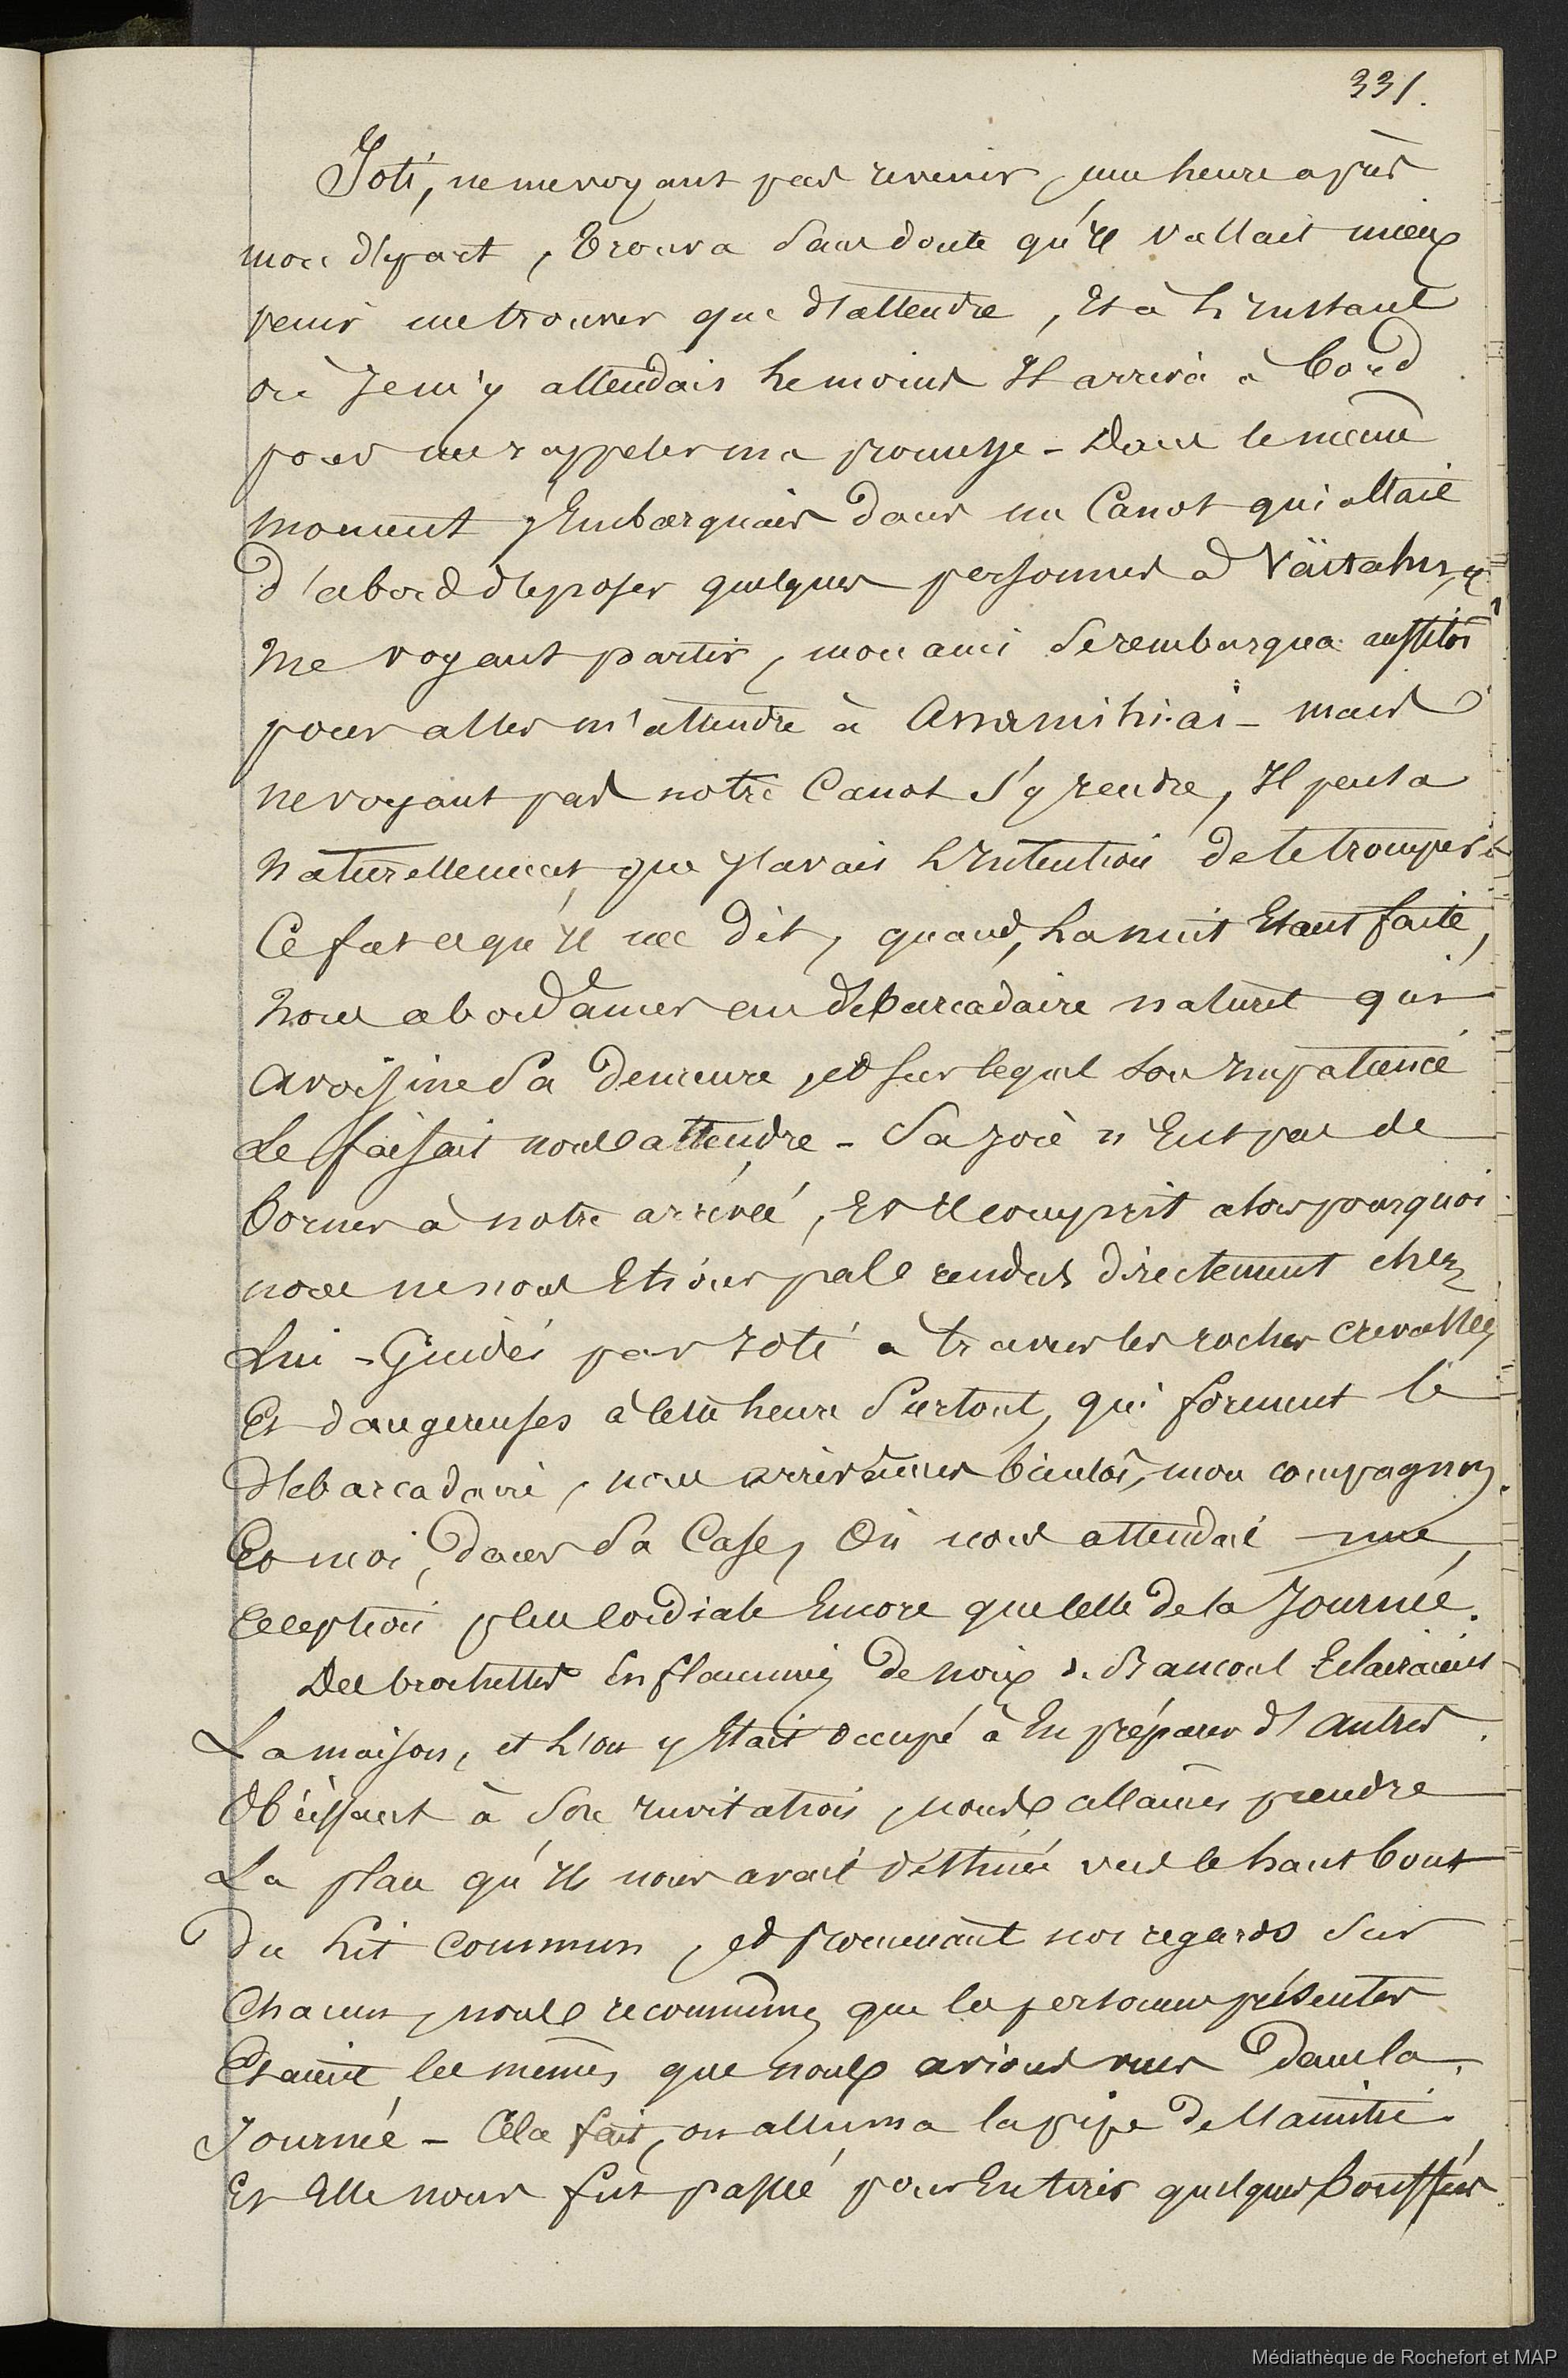 331.
Joti, ne me voyant pas revenir, une heure après
mon départ, trouva sans doute qu'il vallait mieux
venir me trouver que d'attendre, et à l'instant
où je m'y attendais le moins il arriva à bord
pour me rappeler ma promesse - Dans le même
moment j'embarquais dans un canot qui allait
d'abord déposer quelques personnes à Vaïtahu, &
me voyant partir, mon ami se rembarqua aussitôt
pour aller m'attendre à Anamihiai - mais
ne voyant pas notre canot s'y rendre, il pensa
naturellement que j'avais l'intention de le tromper &
ce fut ce qu'il me dit, quand, la nuit étant faite,
nous abordâmes au débarcadaire naturel qui
avoisine sa demeure, et sur lequel son impatience
le faisait nous attendre - Sa joie n'eut pas de
bornes à notre arrivée, et il comprit alors pourquoi
nous ne nous étions pas rendus directement chez
lui - Guidés par Joti à travers les roches crevassées
et dangereuses à cette heure surtout, qui forment le
débarcadaire, nous arrivâmes bientôt, mon compagnon
et moi, dans sa case, où nous attendait une
réception plus cordiale encore que celle de la journée.
Des brochettes enflammées de noix de Bancoul éclairaient
la maison, et l'on y était occupé à en préparer d'autres.
Obéissant à son invitation, nous allâmes prendre
la place qu'ils nous avait destinée vers le haut bout
du lit commun, et promenant nos regards sur
chacun, nous reconnûmes que les personnes présentes
étaient les mêmes que nous avions vues dans la
journée - Cela fait, on alluma la pipe de l'amitié
et elle nous fut passée pour en tirer quelques bouffées
Médiathèque de Rochefort et MAP